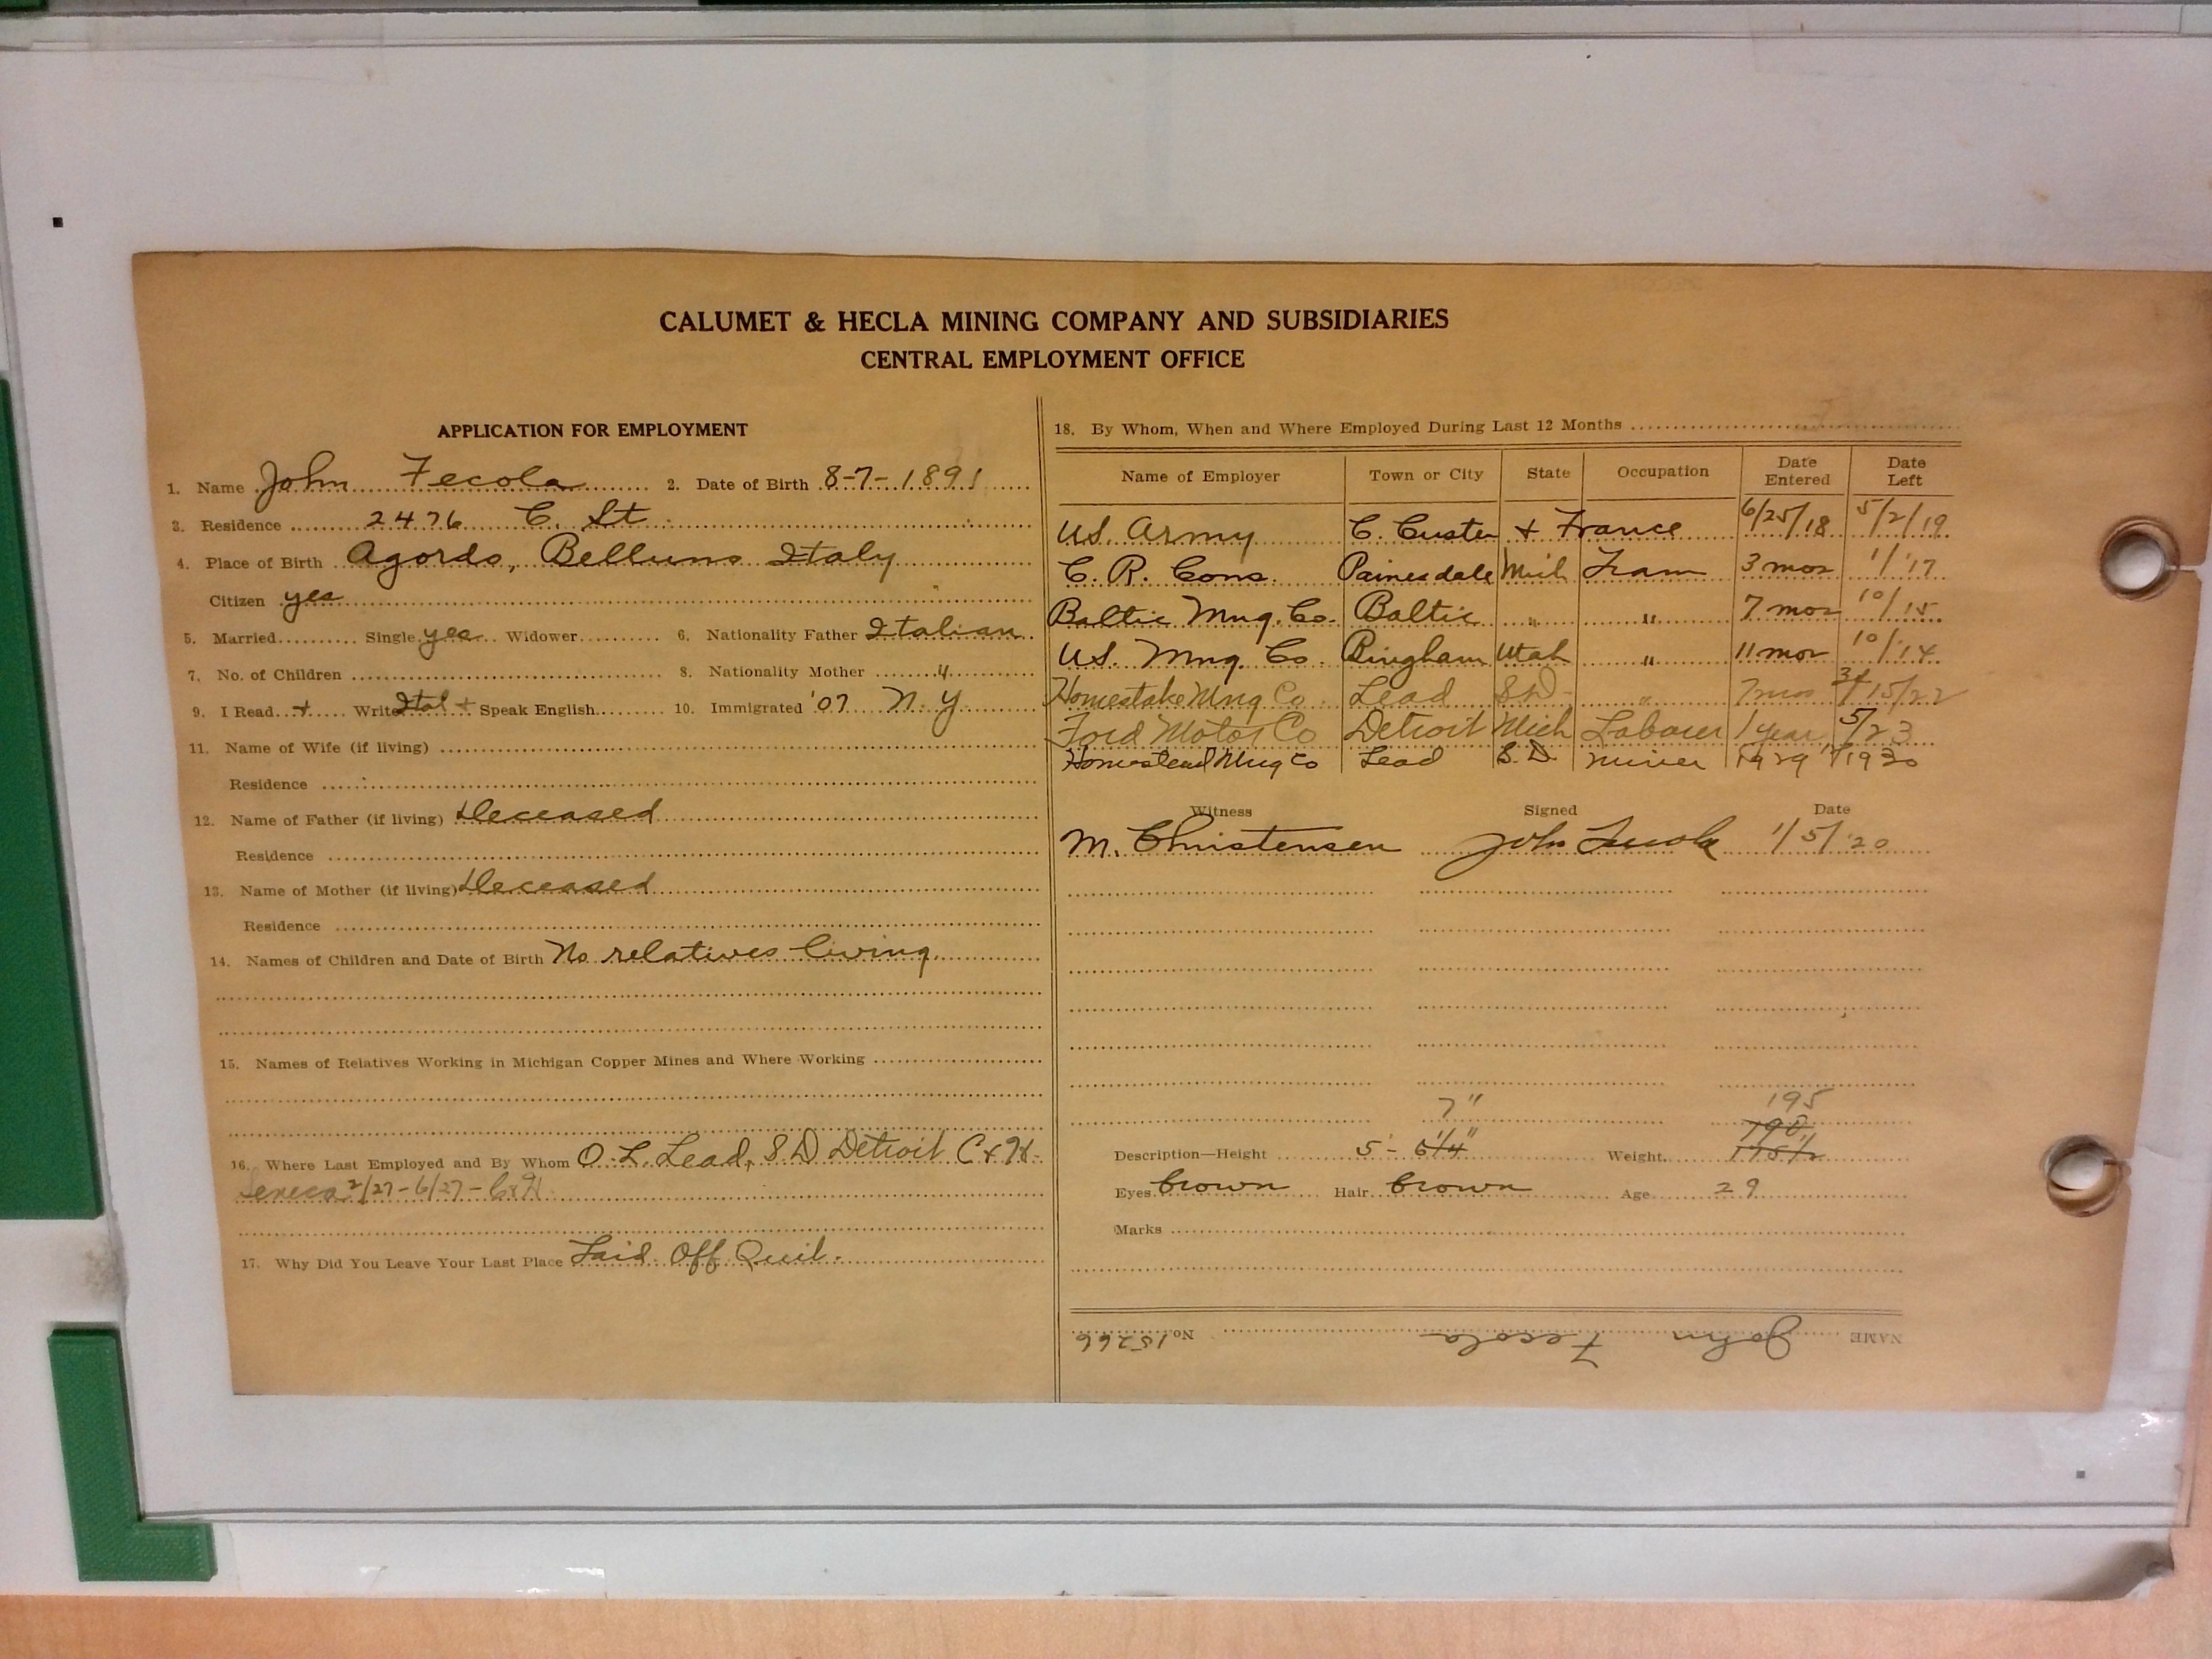 CALUMET & HECLA MINING COMPANY AND SUBSIDIARIES
CENTRAL EMPLOYMENT OFFICE
APPLICATION FOR EMPLOYMENT
1. Name John Fecola 2. Date of Birth 8-7-1891
3. Residence 2476 C. St.
4. Place of Birth Agordo, Belluno Italy
Citizen yes
5. Married Single yes Widower 6. Nationality Father Italian
7. No. of Children 8. Nationality Mother "
9. I Read + Write Ital + Speak English 10. Immigrated '07 N.Y.
11. Name of Wife (if living)
Residence
12. Name of Father (if living) Deceased
Residence
13. Name of Mother (if living) Deceased
Residence
14. Names of Children and Date of Birth No relatives living
15. Names of Relatives Working in Michigan Copper Mines and Where Working
16. Where Last Employed and By Whom O.L. Lead, S.D Detroit C & H.
Seneca 2/27-6/27- C & H
17. Why Did You Leave Your Last Place Laid Off Quil.
18. By Whom, When and Where Employed During Last 12 Months
Name of Employer Town or City State Occupation Date Entered Date Left
U.S. Army C. Custer + France 6/25/18 5/2/19
C. R. Cons. Painesdale Mich Tram 3 mos 1/'17
Baltic Mng. Co. Baltic " " 7 mos 10/15
U.S. Mng. Co. Bingham Utah " 11 mos 10/14
Homestake Mng Co. Lead S.D. " 7 mos 15/22
Ford Motor Co Detroit Mich Laborer 1 year 5/23
Homestead Mng Co Lead S.D. miner 1929 1930
Witness Signed Date
M. Christensen John Fecola 1/5/'20
7" 195
190
Description—Height 5'- 6 1/4" Weight 175 1/2
Eyes brown Hair brown Age 29
Marks
NAME John Fecola No. 15266